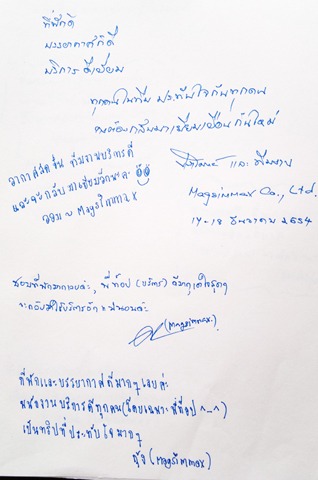 ที่พักดี
บรรยากาศดี
บริการดีเยี่ยม
ทุกคนในทีม ประทับใจกันทุกคน
คงต้องกลับมาเยี่ยมเยือนกันใหม่
อากาศสดชื่น ทีมงานบริการดี
แล้วจะกลับมาเยี่ยมอีกนะคะ
จอม ~ Magsimmax
และ ทีมงาน
Magsimmax Co., Ltd.
17-18 ธันวาคม 2554
ชอบที่พักมากเลยค่ะ, พี่ท็อป (บริการ) ดีมากถูกใจสุดๆ
จะกลับมาใช้บริการอีก แน่นอนค่ะ
(Magsimmax.)
ที่พักและบรรยากาศดีมากๆ เลยค่ะ
พนักงานบริการดีทุกคน (โดยเฉพาะพี่ท็อป ^_^)
เป็นทริปที่ประทับใจมากๆ
กุ้ง (Magsimmax)